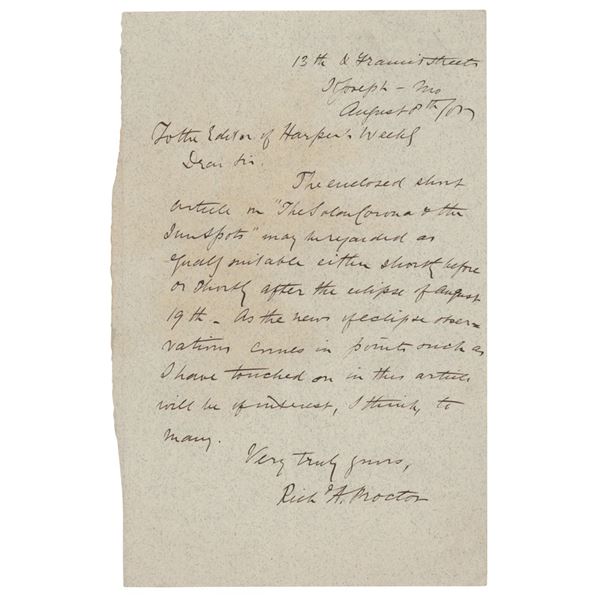 13th & Francis Streets
St Joseph - Mo
August 8th/87
To the Editor of Harper's Weekly
Dear Sir.
The enclosed short
article on "The Solar Corona & the
Sun Spots" may be regarded as
equally suitable either shortly before
or shortly after the eclipse of August
19th - As the news of eclipse obser=
vations comes in points such as
I have touched on in this article
will be of interest, I think, to
many.
Very truly yours,
Richd A. Proctor